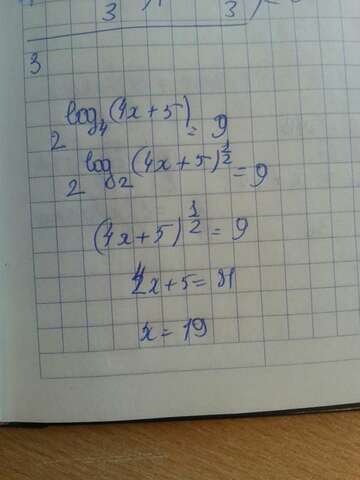 3 3
3
2^log₄(4x+5) = 9
2^log₂(4x+5)^(1/2) = 9
(4x+5)^(1/2) = 9
4x+5=81
x=19